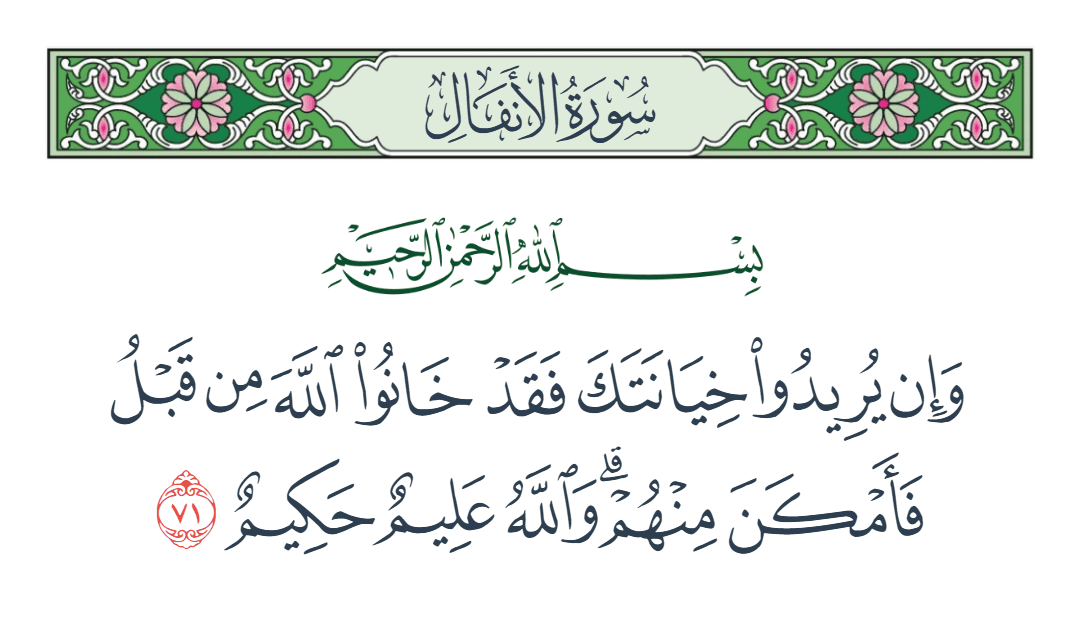 سُورَةُ الأَنفَالِ
بِسْمِ ٱللَّهِ ٱلرَّحْمَٰنِ ٱلرَّحِيمِ
وَإِن يُرِيدُوا۟ خِيَانَتَكَ فَقَدْ خَانُوا۟ ٱللَّهَ مِن قَبْلُ
فَأَمْكَنَ مِنْهُمْ ۗ وَٱللَّهُ عَلِيمٌ حَكِيمٌ ٧١